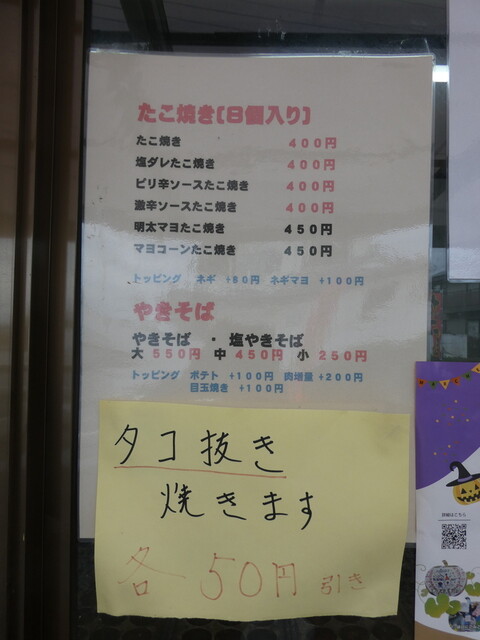 たこ焼き(8個入り)
たこ焼き 400円
塩ダレたこ焼き 400円
ピリ辛ソースたこ焼き 400円
激辛ソースたこ焼き 400円
明太マヨたこ焼き 450円
マヨコーンたこ焼き 450円
トッピング ネギ +50円 ネギマヨ +100円
やきそば
やきそば ・ 塩やきそば
大 550円 中 450円 小 250円
トッピング ポテト +100円 肉増量 +200円
目玉焼き +100円
タコ抜き
焼きます
各 50円 引き
詳細はこちら